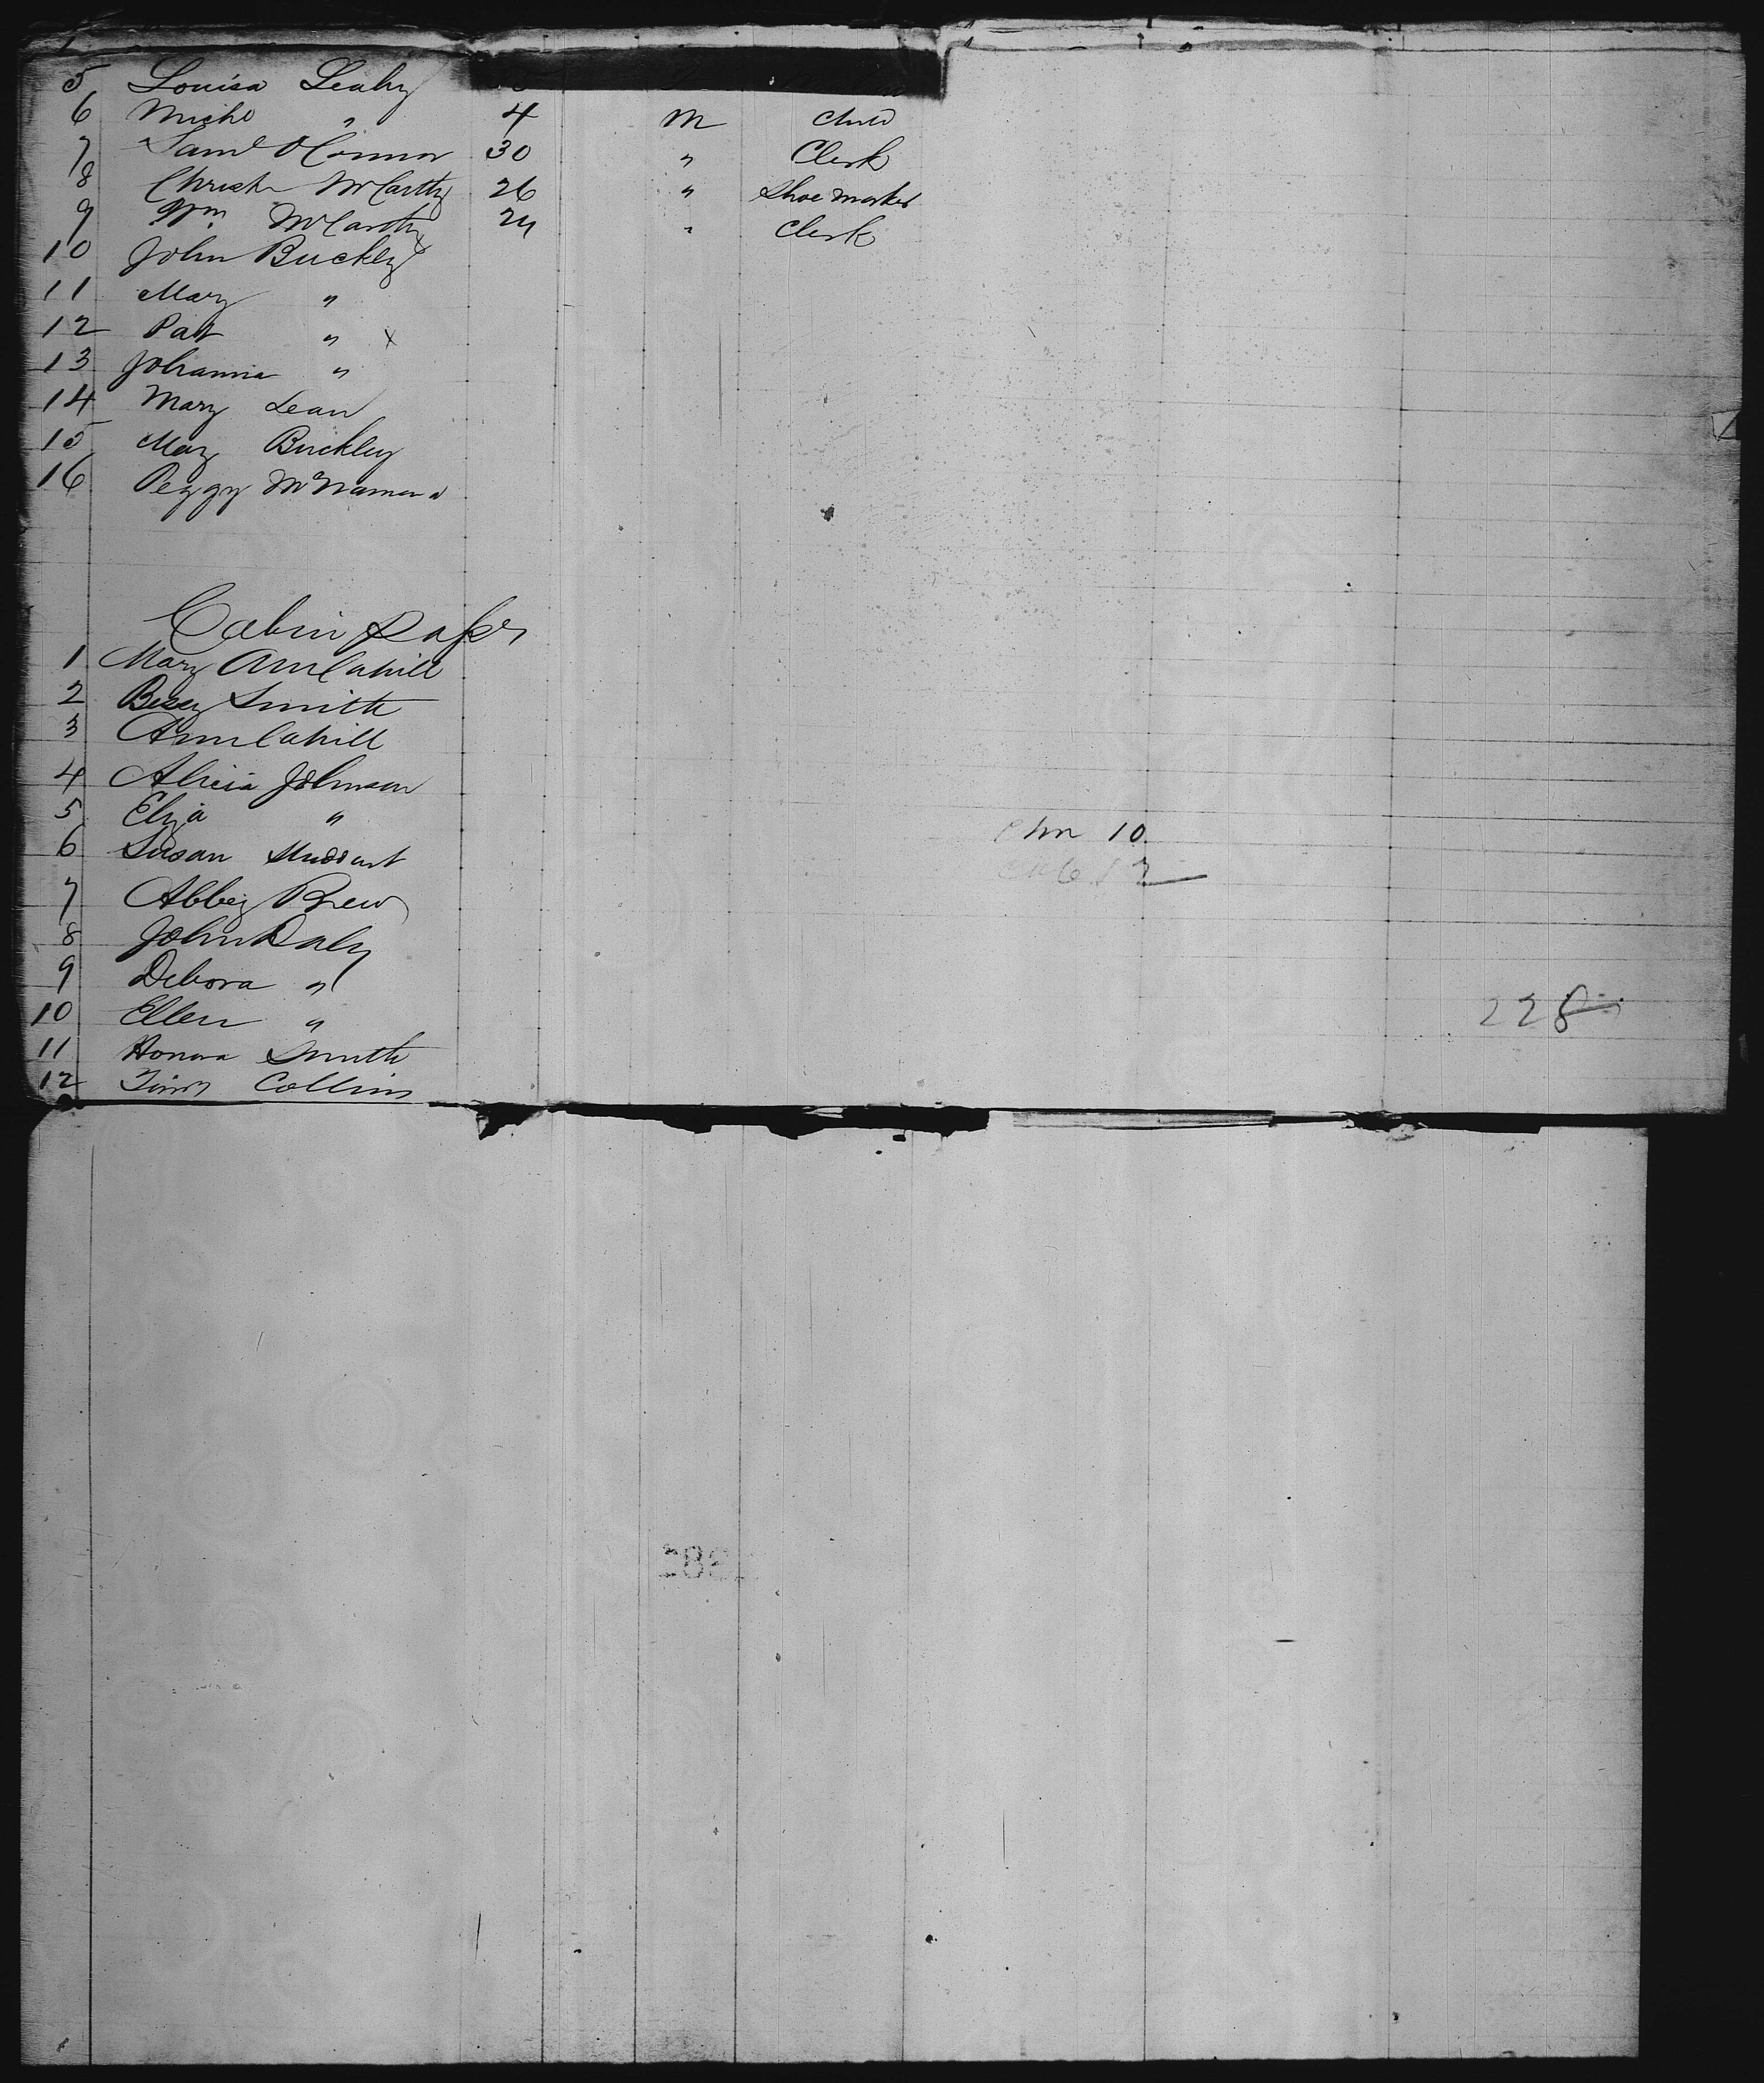 5 Louisa Leahy
6 Michl " 4 M Child
7 Saml O'Connor 30 " Clerk
8 Christr McCarthy 26 " Shoe marker
9 Wm McCarthy 24 " Clerk
10 John Buckley
11 Mary "
12 Pat " x
13 Johanna "
14 Mary Lean
15 Mary Buckley
16 Peggy McNamara
Cabin Passgrs
1 Mary Ann Cahill
2 Bessy Smith
3 Ann Cahill
4 Alicia Johnson
5 Eliza "
6 Susan
7 Abbey Brew
8 John Daly
9 Debora "
10 Ellen "
11 Honora Smith
12 Timy Collins
10
228